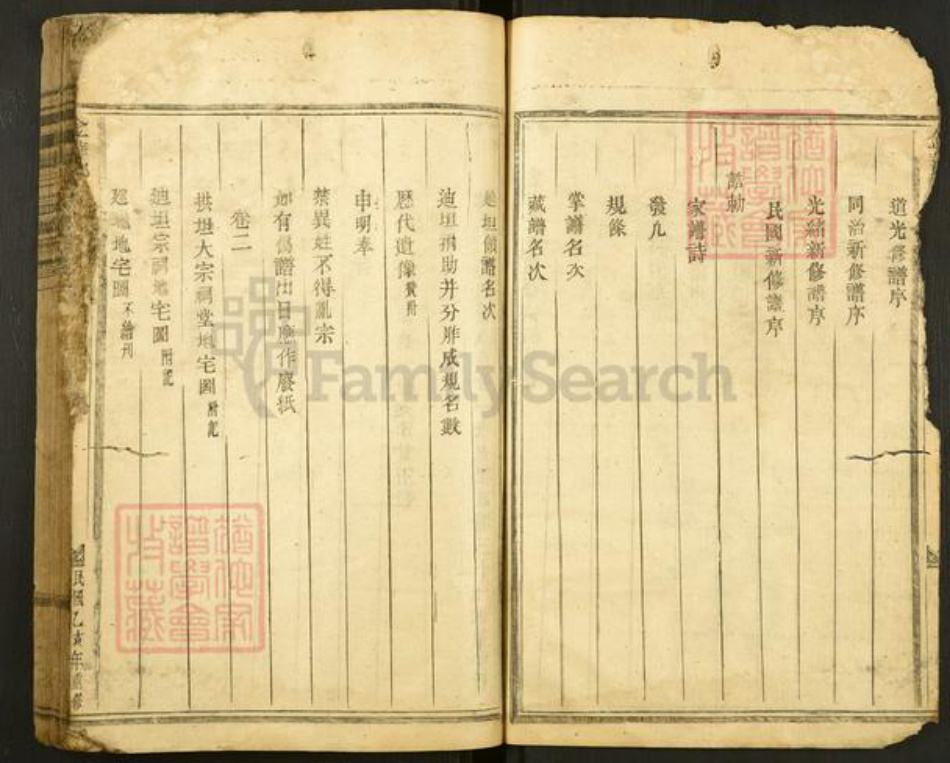 道光修譜序
同治新修譜序
光緒新修譜序
民國新修譜序
誥勅
家譜詩
發凡
規條
掌譜名次
藏譜名次
坦領譜名次
迪坦捐助并分胙成規名數
歷代遺像贊附
申明奉
禁異姓不得亂宗
如有僞譜出日應作廢紙
卷二
拱坦大宗祠堂地宅圖附記
迪坦宗祠地宅圖附記
地宅圖不繪刊
民國乙亥年重修
FamilySearch
譜學會
收藏